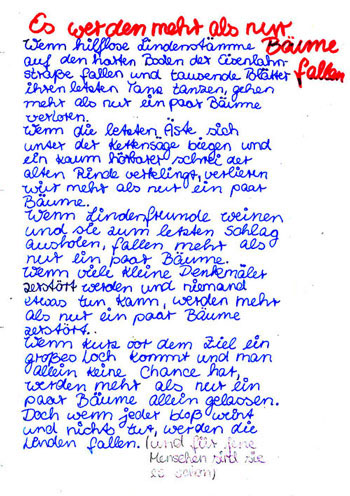 Es werden mehr als nur
Bäume
fallen
Wenn hilflose Lindenstämme
auf den harten Boden der Eisenbahn-
straße fallen und tausende Blätter
ihren letzten Tanz tanzen, gehen
mehr als nur ein paar Bäume
verloren.
Wenn die letzten Äste sich
unter der Kettensäge biegen und
ein kaum hörbarer Schrei der
alten Rinde verklingt, verlieren
wir mehr als nur ein paar
Bäume.
Wenn Lindenfreunde weinen
und sie zum letzten Schlag
ausholen, fallen mehr als
nur ein paar Bäume.
Wenn viele kleine Denkmäler
zerstört werden und niemand
etwas tun kann, werden mehr
als nur ein paar Bäume
zerstört.
Wenn kurz vor dem Ziel ein
großes Loch kommt und man
allein keine Chance hat,
werden mehr als nur ein
paar Bäume allein gelassen.
Doch wenn jeder bloß weint
und nichts tut, werden die
Linden fallen. (und für jene
Menschen sind sie
es schon)